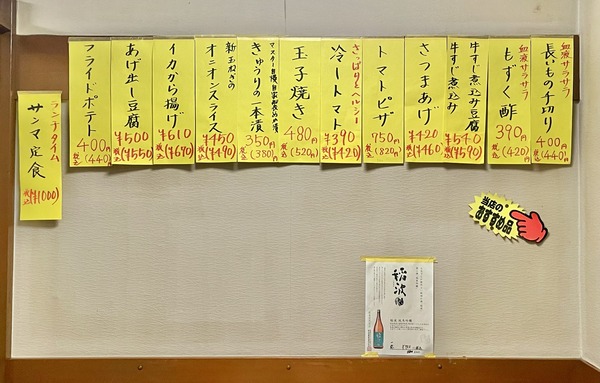 血液サラサラ
長いもの千切り
400円
税込(440)
血液サラサラ
もずく酢
390円
税込(420)
牛すじ煮込み豆腐
牛すじ煮込み
¥540
税込(¥590)
さつまあげ
¥420
税込(¥460)
トマトピザ
750円
税込(820円)
さっぱりとヘルシー
冷しトマト
¥390
税込(¥420)
玉子焼き
480円
税込(520円)
きゅうりの一本漬
350円
税込(380円)
新玉ねぎの
オニオンスライス
¥450
税込(¥490)
イカから揚げ
¥610
税込(¥670)
あげ出し豆腐
¥500
税込(¥550)
フライドポテト
400円
税込(440)
ランチタイム
サンマ定食
税込(¥1000)
当店の
おすすめ品
稲波